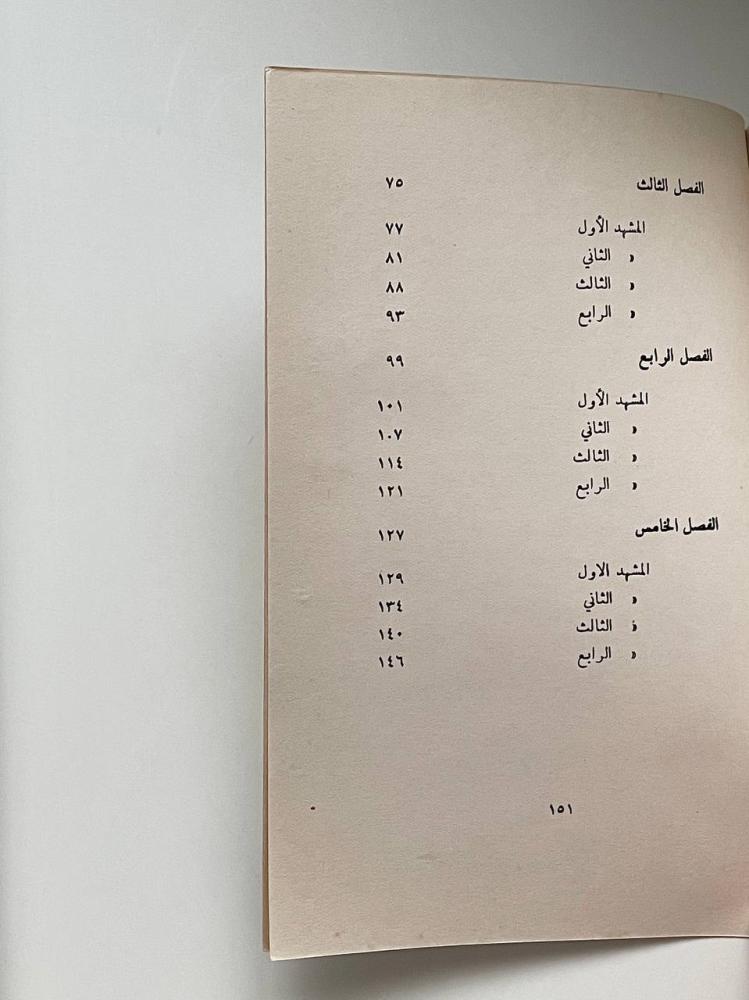 الفصل الثالث ٧٥
المشهد الأول ٧٧
« الثاني ٨١
« الثالث ٨٨
« الرابع ٩٣
الفصل الرابع ٩٩
المشهد الأول ١٠١
« الثاني ١٠٧
« الثالث ١١٤
« الرابع ١٢١
الفصل الخامس ١٢٧
المشهد الاول ١٢٩
« الثاني ١٣٤
« الثالث ١٤٠
« الرابع ١٤٦
١٥١